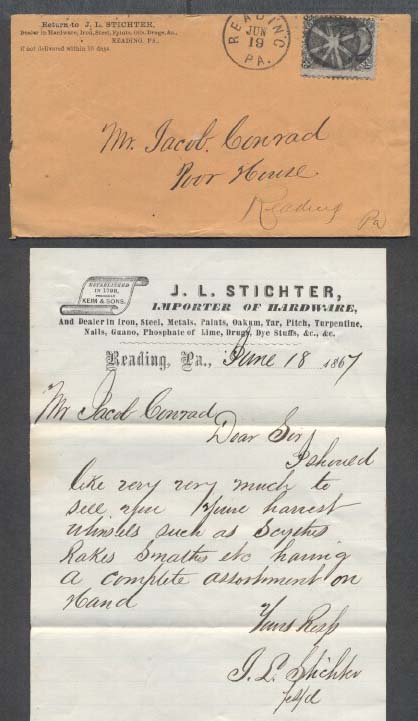 Return to J. L. STICHTER,
Dealer in Hardware, Iron, Steel, Paints, Oils, Drugs, &c.,
READING, PA.,
if not delivered within 10 days.
READING
JUN
19
PA.
Mr. Jacob. Conrad
Poor House
Reading
Pa
ESTABLISHED
IN 1798,
KEIM & SONS.
J. L. STICHTER,
IMPORTER OF HARDWARE,
And Dealer in Iron, Steel, Metals, Paints, Oakum, Tar, Pitch, Turpentine,
Nails, Guano, Phosphate of Lime, Drugs, Dye Stuffs, &c., &c.
Reading, Pa., June 18 1867
Mr Jacob Conrad
Dear Sir
I should
like very very much to
sell you your harvest
utinsels such as Scythes
Rakes Snathes etc having
a complete assortment on
Hand
Yours Resp
J. L. Stichter